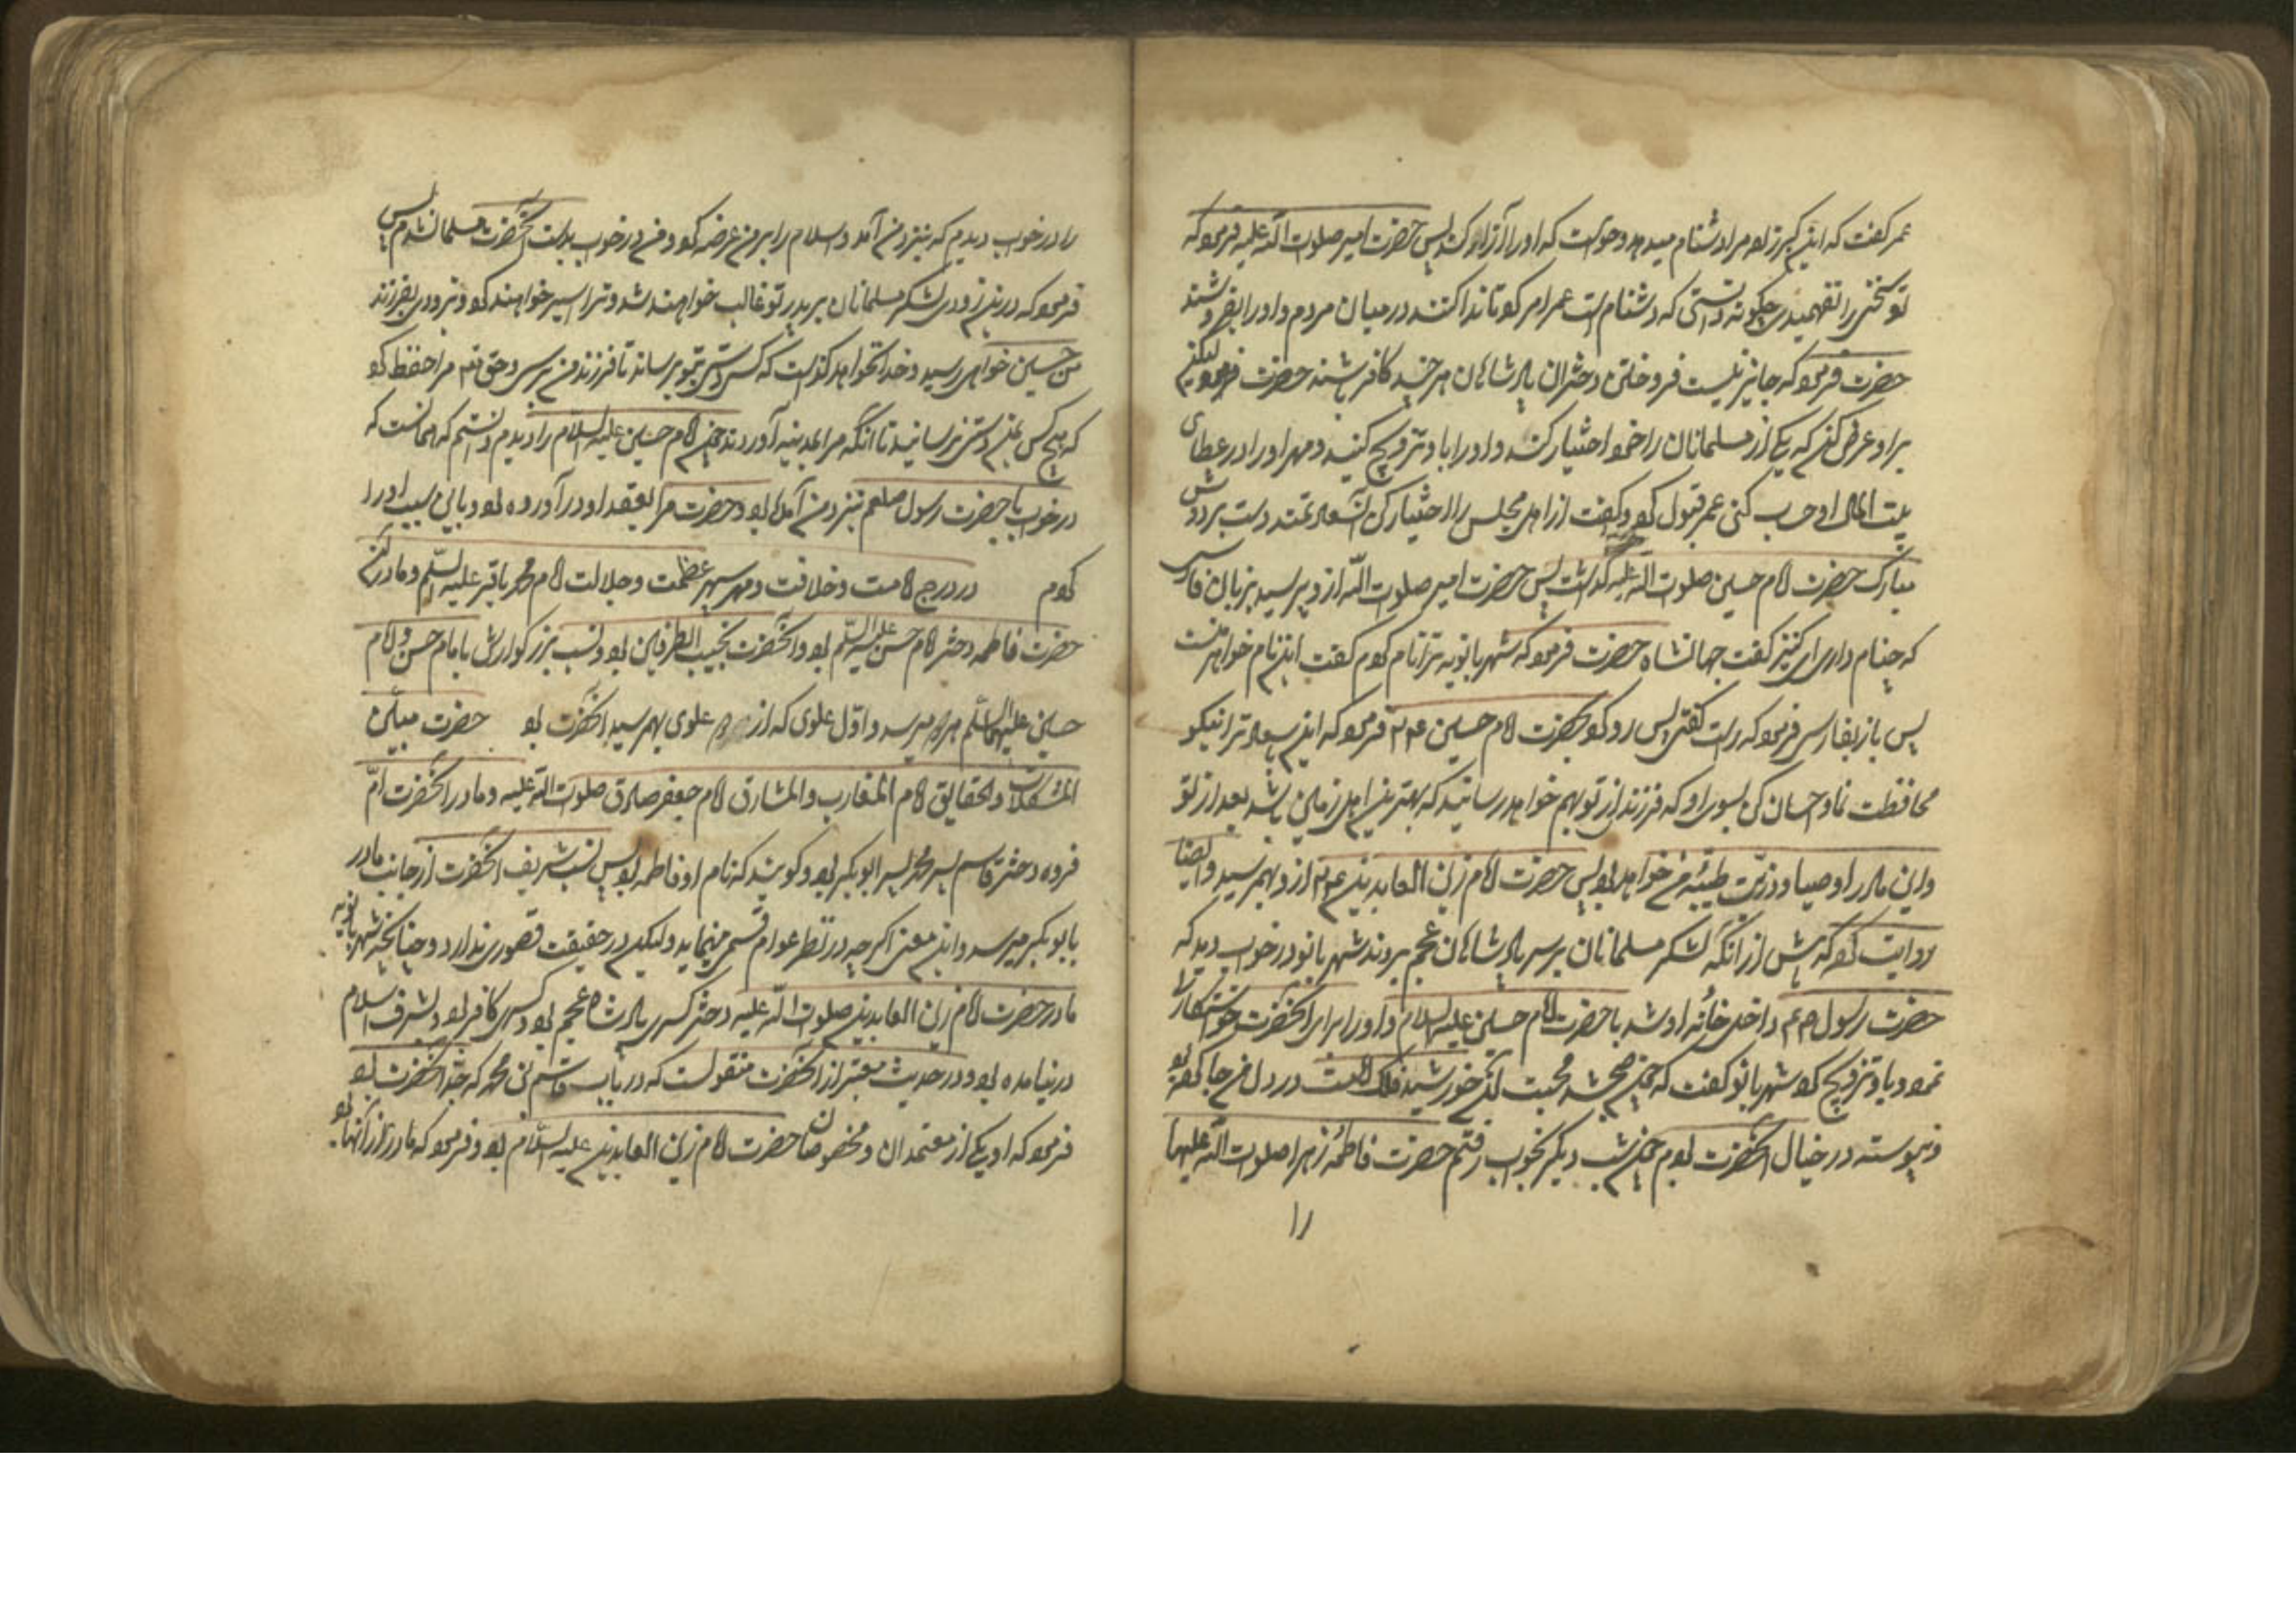 عمر گفت که این گبرزاده مرا دشنام میدهد و خواست که او را آزار کند پس حضرت امیر صلوات الله علیه فرمود که
تو سخن را نفهمیدی چگونه دانستی که دشنام است عمر امر کرد تا ندا کنند در میان مردم و او را بفروشند
حضرت فرمود که جایز نیست فروختن دختران پادشاهان هر چند کافر باشند حضرت فرمود لیکن
بر او عرض کن که یکی از مسلمانان را خود اختیار کند و او را با و تزویج کنند و مهر او را در عطای
بیت المال او حساب کنی عمر قبول کرد و گفت از اهل مجلس را اختیار کن آن سعادتمند دست بر دوش
مبارک حضرت امام حسین صلوات الله علیه گذاشت پس حضرت امیر صلوات الله از و پرسید بزبان فارسی
که چنام داری ای کنیز گفت جهانشاه حضرت فرمود که شهربانویه ترا نام کردم گفت این نام خواهر منست
پس باز بفارسی فرمود که راست گفتی پس رو کرد بحضرت امام حسین ع م فرمود که این سعادتمند را نیکو
محافظت نما و احسان کن بسوی او که فرزندی از تو بهم خواهد رسانید که بهترین اهل زمین باشد بعد از تو
و این مادر اوصیا و ذریت طیبه من خواهد بود پس حضرت امام زین العابدین ع م از و بهم رسید و ایضا
روایت کرده که پیش از آنکه لشکر مسلمانان بر سر پادشاهان عجم بروند شهربانو در خواب دید که
حضرت رسول صلعم داخل خانه او شد با حضرت امام حسین علیه السلام و او را برای آنحضرت خواستکاری
نمود و باو تزویج کرد شهربانو گفت که چون صبح شد محبت آن خورشید فلک امامت در دل من جا کرد
و پیوسته در خیال آنحضرت بودم چون شب دیگر بخواب رفتم حضرت فاطمه زهرا صلوات الله علیها
را
را در خواب دیدم که بنزد من آمد و اسلام را بر من عرضه کرد و من در خواب بدست آنحضرت مسلمان شدم پس
فرمود که در این زودی لشکر مسلمانان بر پدر تو غالب خواهند شد و ترا اسیر خواهند کرد و بزودی بفرزند
من حسین خواهی رسید و خدا نخواهد گذاشت که کسی دستی بتو برساند تا بفرزند من برسی و حق تعالی مرا حفظ کرد
که هیچ کس بمن دستی نرسانید تا آنکه مرا بمدینه آوردند چون امام حسین علیه السلام را دیدم دانستم که همانست که
در خواب با حضرت رسول صلعم بنزد من آمده بود و حضرت مرا بعقد او در آورده بود و باین سبب او را اختیار
کردم در درج امامت و خلافت و مهر سپهر عظمت و جلالت امام محمد باقر علیه السلم و مادر آن
حضرت فاطمه دختر امام حسن علیه السلم بود و آنحضرت نجیب الطرفین بود و نسب بزرگوارش بامام حسن و امام
حسین علیهما السلم میرسد و اول علوی که از دو علوی بهم رسید آنحضرت بود حضرت مبین
المشکلات والحقایق امام المغارب والمشارق امام جعفر صادق صلوات الله علیه و مادر آنحضرت ام
فروه دختر قاسم پسر محمد پسر ابوبکر بود و گویند که نام او فاطمه بود پس نسب شریف آنحضرت از جانب مادر
بابوبکر میرسد و این معنی اگر چه در نظر عوام قسمی مینماید ولیکن در حقیقت قصوری ندارد و چنانچه شهربانویه
مادر حضرت امام زین العابدین صلوات الله علیه دختر کسری پادشاه عجم بود و کسری کافر بود و بشرف اسلام
در نیامده بود و در حدیث معتبر از آنحضرت منقولست که در باب قاسم بن محمد که جد آنحضرت بود
فرمود که او یکی از معتمدان و مخصوصان حضرت امام زین العابدین علیه السلام بود و فرمود که مادرم از آنها بود